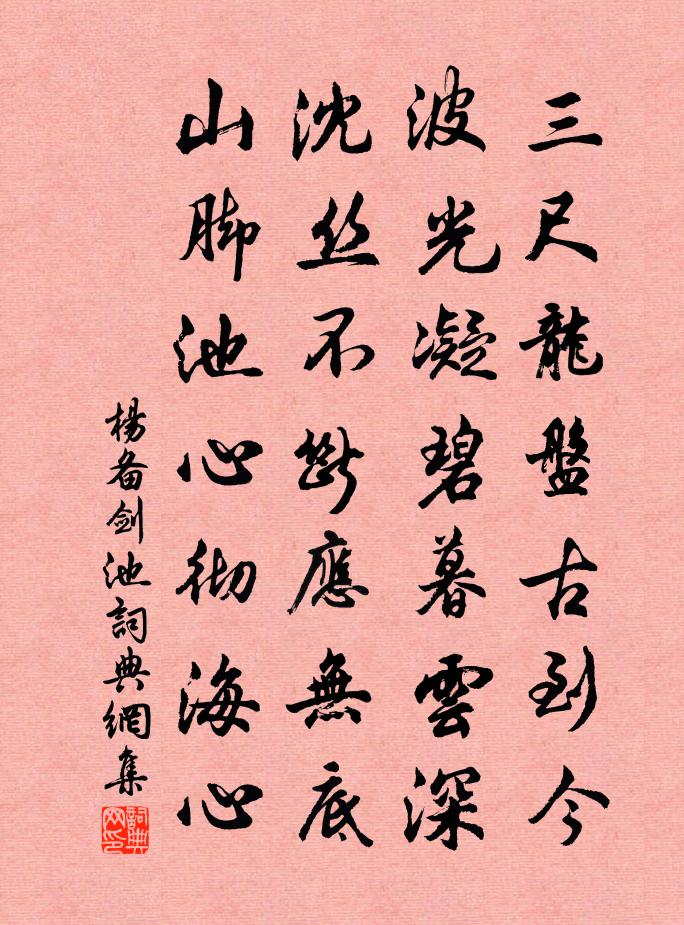 三尺龍盤古到今
波光凝碧暮雲深
沈丝不斷應無底
山脚池心彻海心
楊备剑池詞典網集
詞典网印